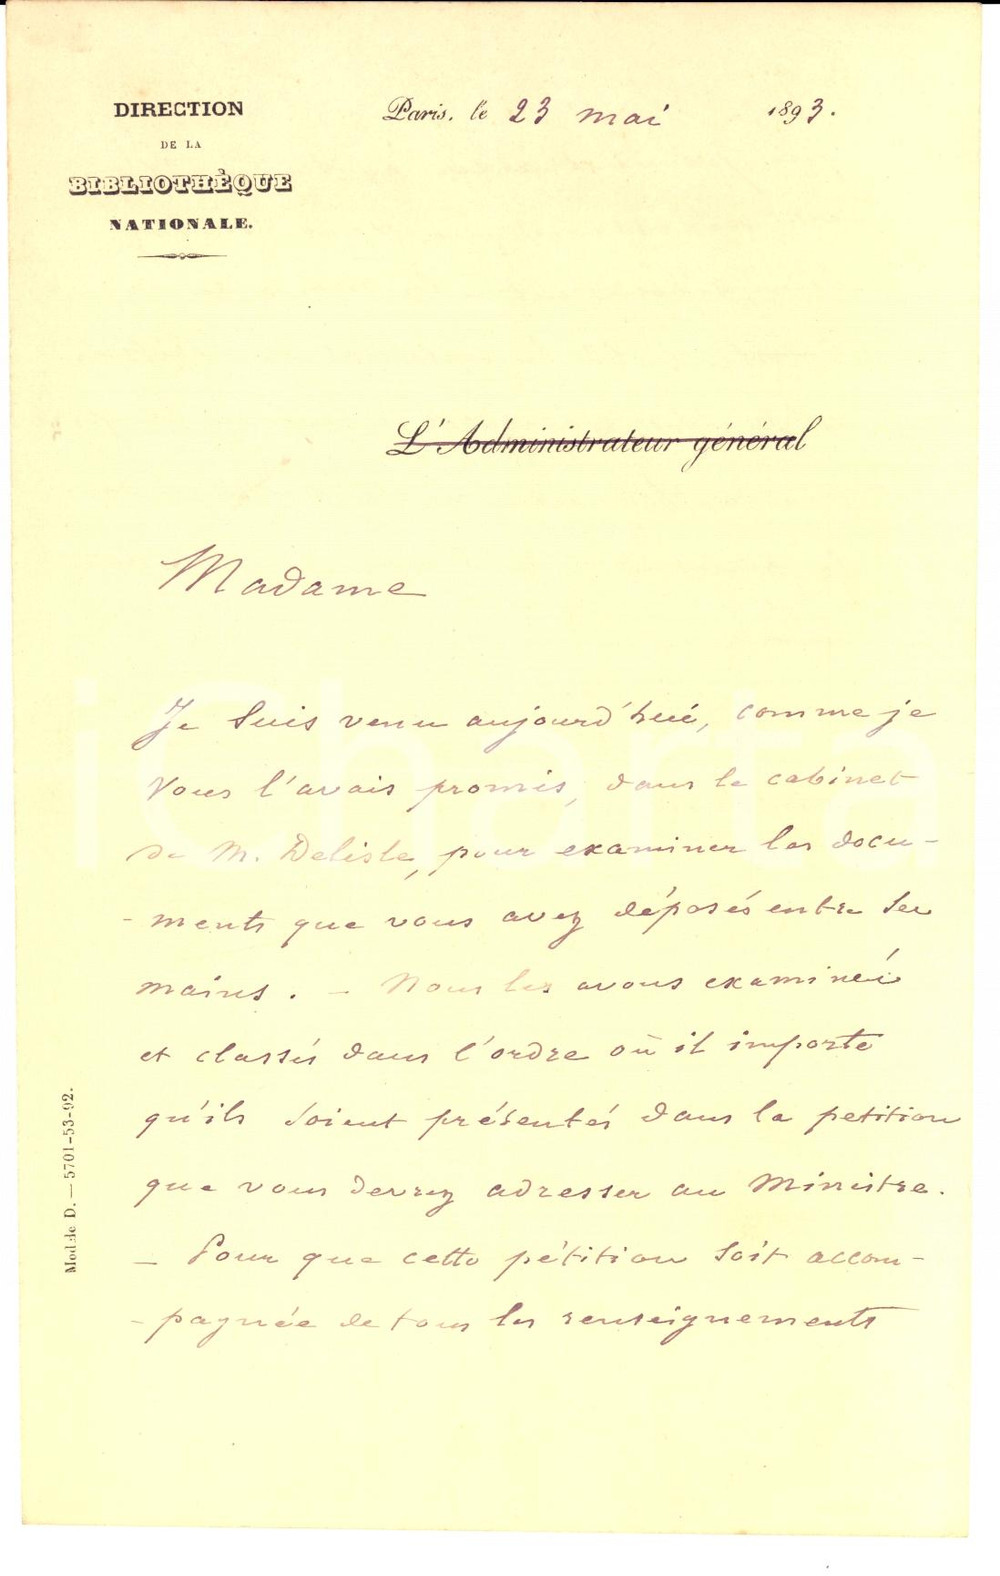 DIRECTION
DE LA
BIBLIOTHÈQUE
NATIONALE.
Paris, le 23 mai 1893.
L'Administrateur général
Madame
Je suis venu aujourd'hui, comme je
vous l'avais promis, dans le cabinet
de M. Delisle, pour examiner les docu-
-ments que vous avez déposés entre ses
mains. - Nous les avons examinés
et classés dans l'ordre où il importe
qu'ils soient présentés dans la petition
que vous devrez adresser au Ministre.
- Pour que cette pétition soit accom-
-pagnée de tous les renseignements
Modèle D. — 5701-53-92.
iCharta